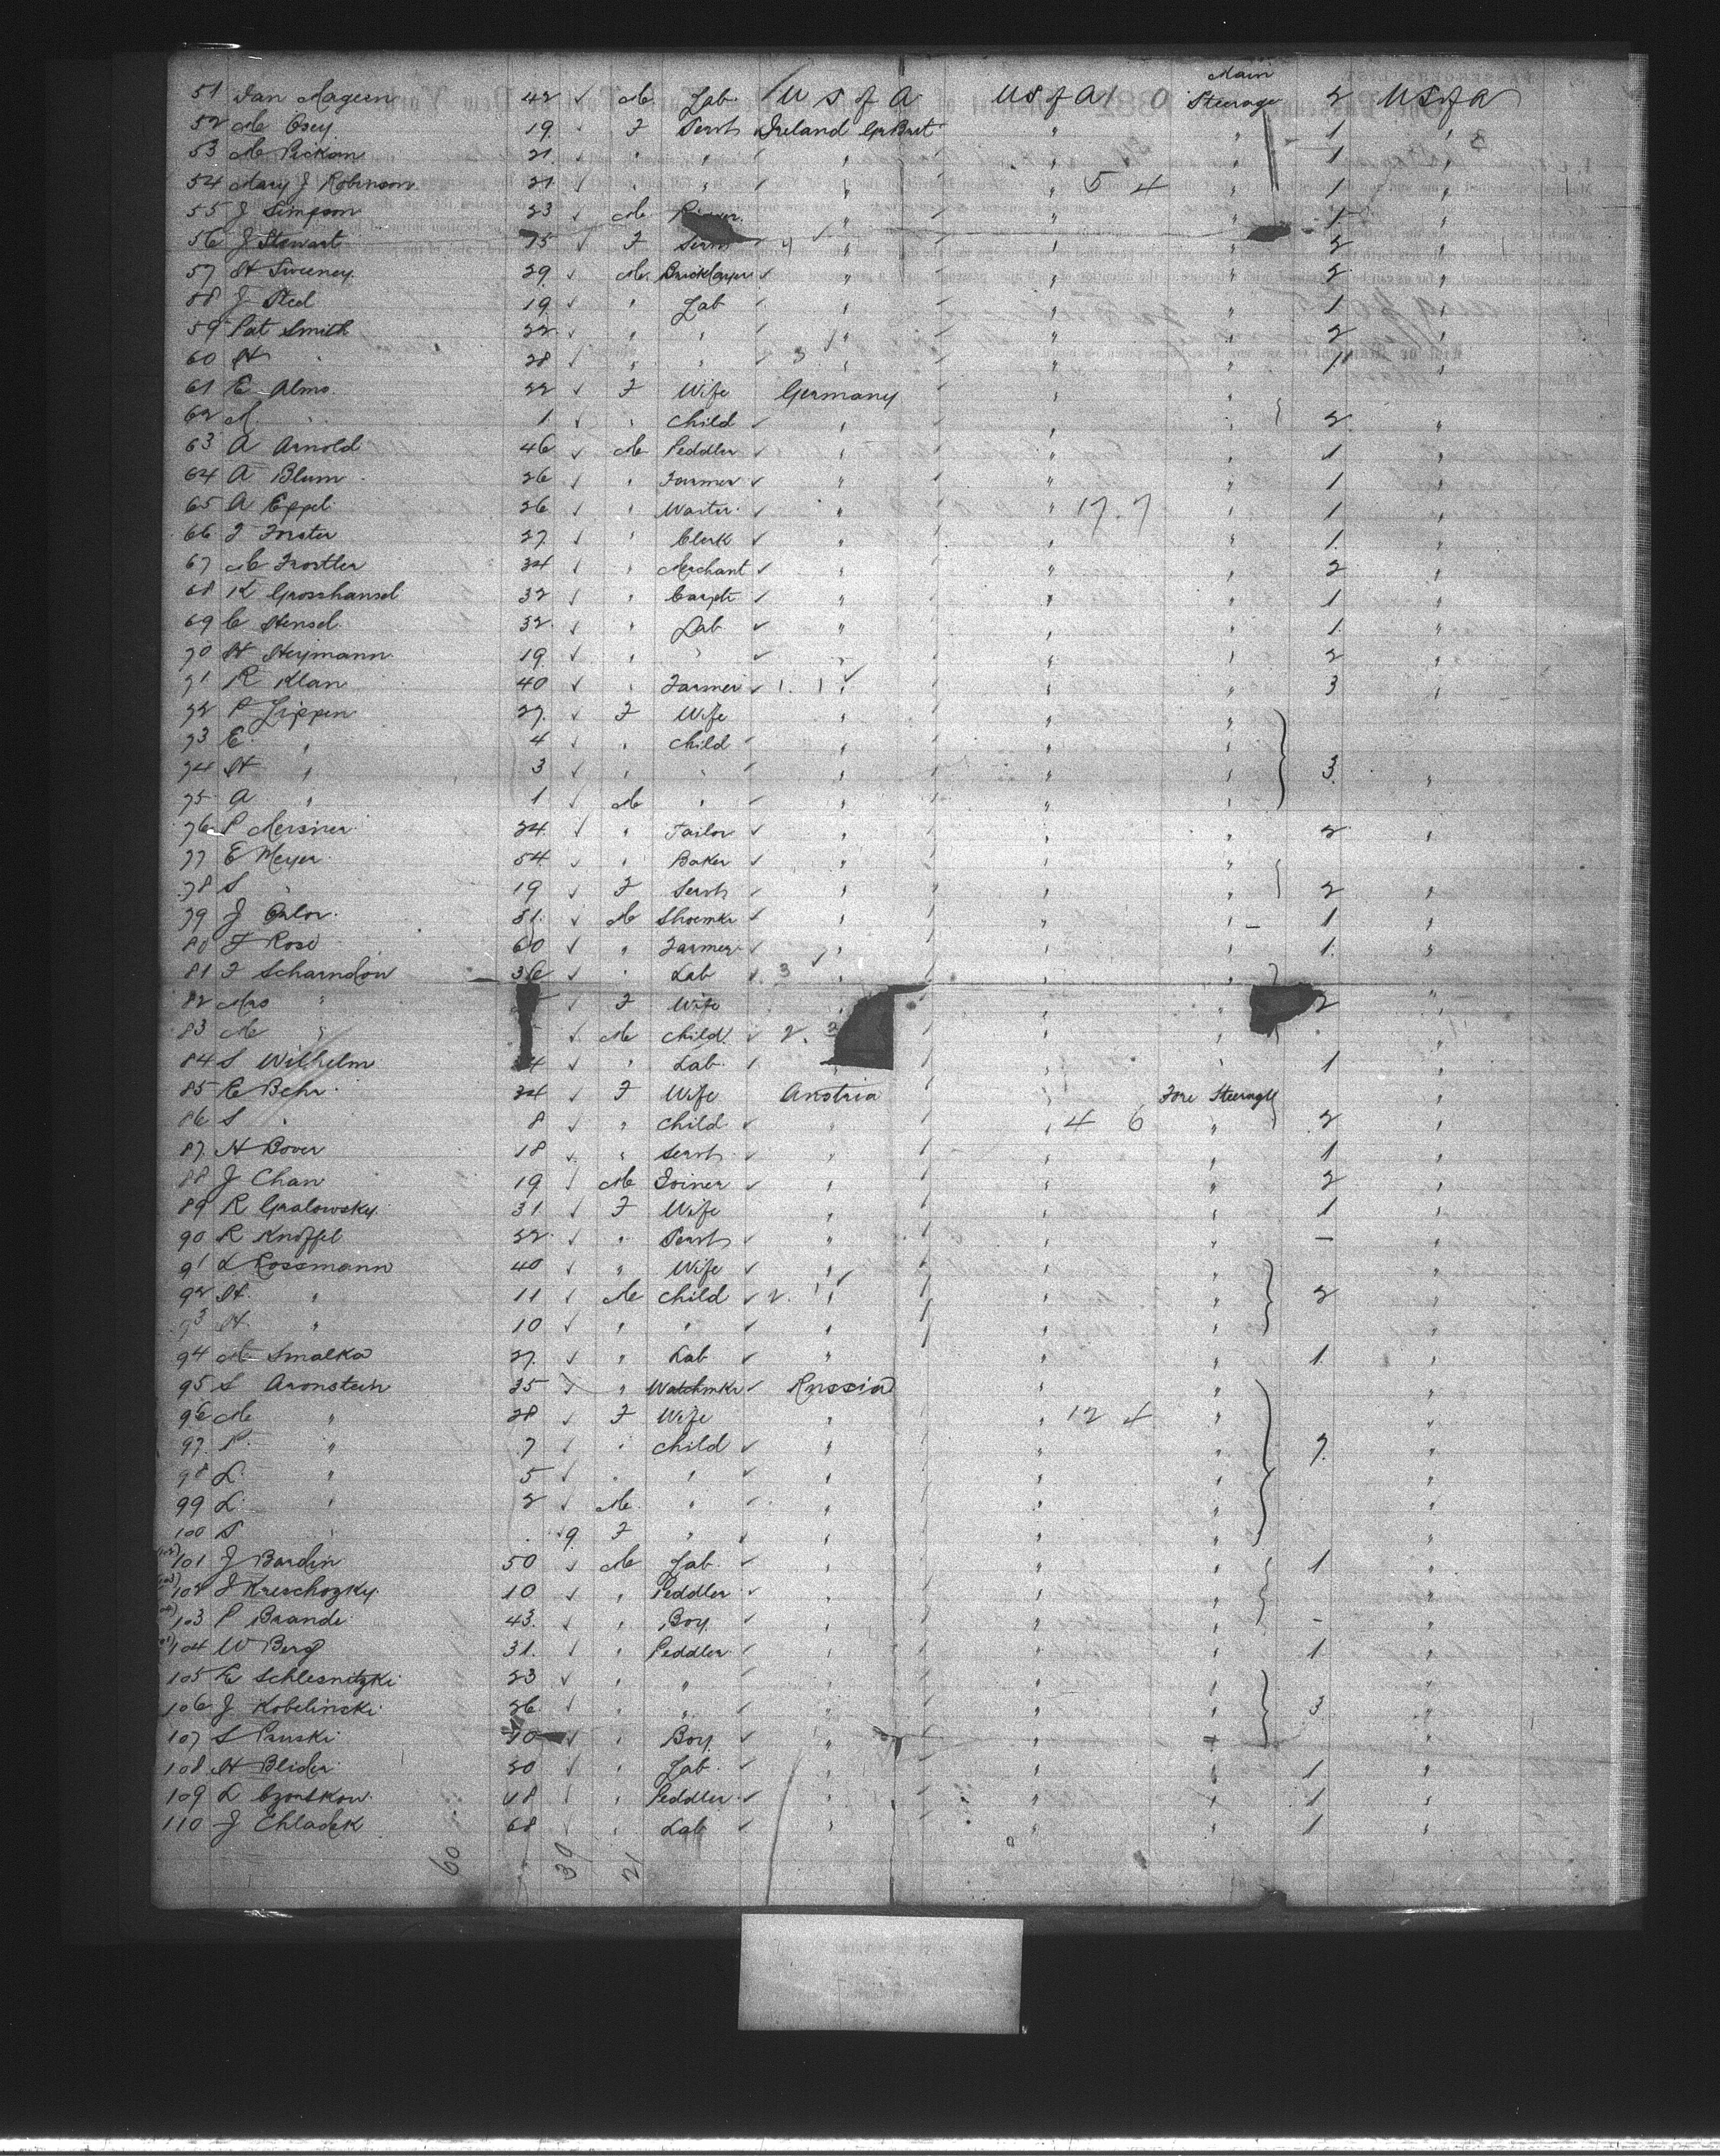 Main
51 Jan Mageen 42 ✓ M Lab. U S of A U S of A 1 0 Steerage 2 U S of A
52 M Osey 19 F Servt Ireland Gr Brit " " 1 "
53 M Pickan 21 " " " " " 1 "
54 Mary J Robinson 21 " " " " 5 4 " 1 "
55 J Simpson 23 ✓ M " " " 1 "
56 J Stewart 75 ✓ F Servt 4 ✓ " " " 2 "
57 H Sweeney 29 ✓ M Bricklayer ✓ " " " 2 "
58 J Steel 19 ✓ " Lab ✓ " " " 1 "
59 Pat Smith 22 ✓ " " " " " 2 "
60 H " 28 ✓ " " 3 ✓ " " " 1 "
61 E Almo 22 ✓ F Wife Germany " "
62 M " 1 ✓ " Child ✓ " " " 2 "
63 A Arnold 46 ✓ M Peddler ✓ " " " 1 "
64 A Blum 26 ✓ " Farmer ✓ " " " 1 "
65 A Eppel 26 ✓ " Waiter ✓ " " 17 7 " 1 "
66 F Forster 27 ✓ " Clerk ✓ " " " 1 "
67 M Frostler 34 ✓ " Merchant ✓ " " " 2 "
68 K Grosshansel 32 ✓ " Carptr ✓ " " " 1 "
69 C Hensel 32 ✓ " Lab ✓ " " " 1 "
70 H Heymann 19 ✓ " " ✓ " " " 2 "
71 R Klan 40 ✓ " Farmer ✓ 1. 1 ✓ " " " 3 "
72 P Lippen 27 ✓ F Wife " " "
73 E " 4 ✓ " Child ✓ " " "
74 H " 3 ✓ " " ✓ " " " 3 "
75 A " 1 ✓ M " ✓ " " "
76 P Mersner 24 ✓ " Tailor ✓ " " " 2 "
77 E Meyer 54 ✓ " Baker ✓ " " "
78 S " 19 ✓ F Servt ✓ " " " 2 "
79 J Orlor 51 ✓ M Shoemkr ✓ " " " 1 "
80 F Rose 60 ✓ " Farmer ✓ ✓ " " " 1 "
81 F Scharndow 36 ✓ " Lab ✓ 3 " "
82 Mrs " ✓ F Wife " " 2 "
83 M " ✓ M Child ✓ 2. 2 " "
84 S Wilhelm 4 ✓ " Lab ✓ " " 1 "
85 E Behr 34 ✓ F Wife Austria " Fore Steerage "
86 S " 8 ✓ " Child ✓ " " 4 6 " 2 "
87 N Bover 18 ✓ " Servt ✓ " " " 1 "
88 J Chan 19 ✓ M Joiner ✓ " " " 2 "
89 R Gralowsky 31 ✓ F Wife " " " 1 "
90 R Knöffel 22 ✓ " Servt ✓ " " " – "
91 L Rossmann 40 ✓ " Wife ✓ " " " "
92 H " 11 ✓ M Child ✓ 2. 1 ✓ " " " 2 "
93 H " 10 ✓ " " ✓ " " " "
94 M Smalka 27 ✓ " Lab ✓ " " " 1 "
95 S Aronstein 35 ✓ " Watchmkr ✓ Russia " " "
96 M " 28 ✓ F Wife " " 12 4 " "
97 P " 7 ✓ " Child ✓ " " " 7 "
98 L " 5 ✓ " " ✓ " " " "
99 L " 2 ✓ M " ✓ " " " "
100 S " 9 F " ✓ " " " "
101 J Bardin 50 ✓ M Lab ✓ " " " 1 "
102 J Kreschozky 10 ✓ " Peddler ✓ " " " "
103 P Brande 43 ✓ " Boy ✓ " " " – "
104 W Berg 31 ✓ " Peddler ✓ " " " 1 "
105 E Schlesnitzki 23 ✓ " " ✓ " " " "
106 J Kobelinski 26 ✓ " " ✓ " " " 3 "
107 S Pruski 10 ✓ " Boy ✓ " " " "
108 H Blider 20 ✓ " Lab ✓ " " " 1 "
109 L Czonskow 48 ✓ " Peddler ✓ " " " 1 "
110 J Chladek 68 ✓ " Lab ✓ " " " 1 "
60 39 21